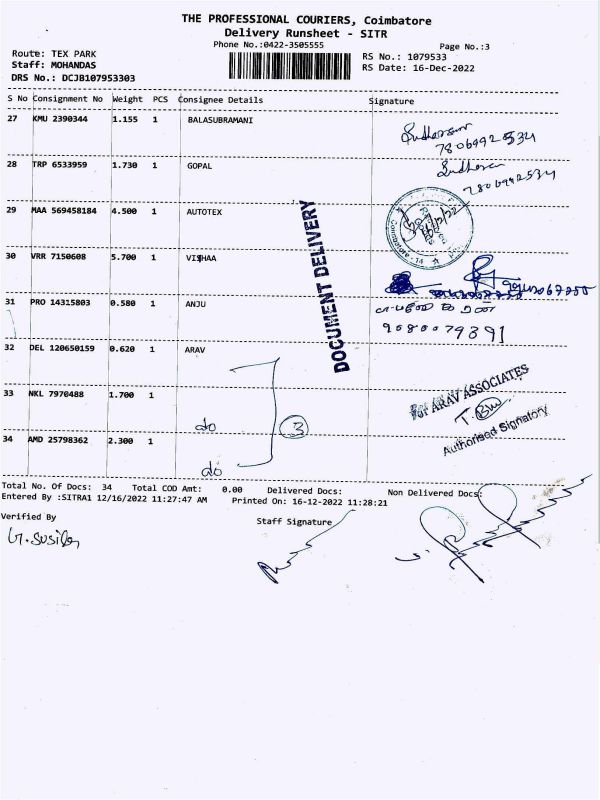 THE PROFESSIONAL COURIERS, Coimbatore
Delivery Runsheet - SITR
Phone No.:0422-3505555
Page No.:3
Route: TEX PARK
RS No.: 1079533
Staff: MOHANDAS
RS Date: 16-Dec-2022
DRS No.: DCJB107953303
S No Consignment No Weight PCS Consignee Details Signature
27 KMU 2390344 1.155 1 BALASUBRAMANI
7806992534
28 TRP 6533959 1.730 1 GOPAL
7806992534
29 MAA 569458184 4.500 1 AUTOTEX
30 VRR 7150608 5.700 1 VISHAA
31 PRO 14315803 0.580 1 ANJU
9080079391
DOCUMENT DELIVERY
32 DEL 120650159 0.620 1 ARAV
33 NKL 7970488 1.700 1
do
3
For ARAV ASSOCIATES
34 AMD 25798362 2.300 1
do
Authorised Signatory
Total No. Of Docs: 34 Total COD Amt: 0.00 Delivered Docs: Non Delivered Docs:
Entered By :SITRA1 12/16/2022 11:27:47 AM Printed On: 16-12-2022 11:28:21
Verified By
Staff Signature